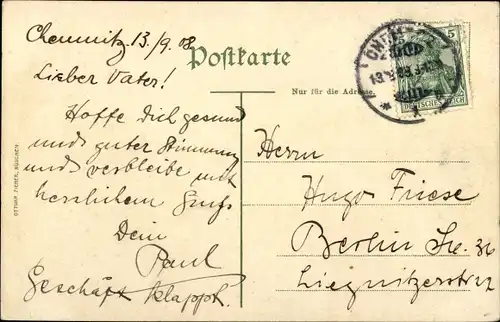 Chemnitz 13/9. 08
Lieber Vater!
Hoffe Dich gesund
und guter Stimmung
und verbleibe mit
herzlichem Gruß
Dein
Paul
Geschäft klappt.
Postkarte
Nur für die Adresse
5
DEUTSCHES REICH
Herrn
Hugo Friese
Berlin So. 36
Liegnitzerstr
OTTMAR ZIEHER, MÜNCHEN